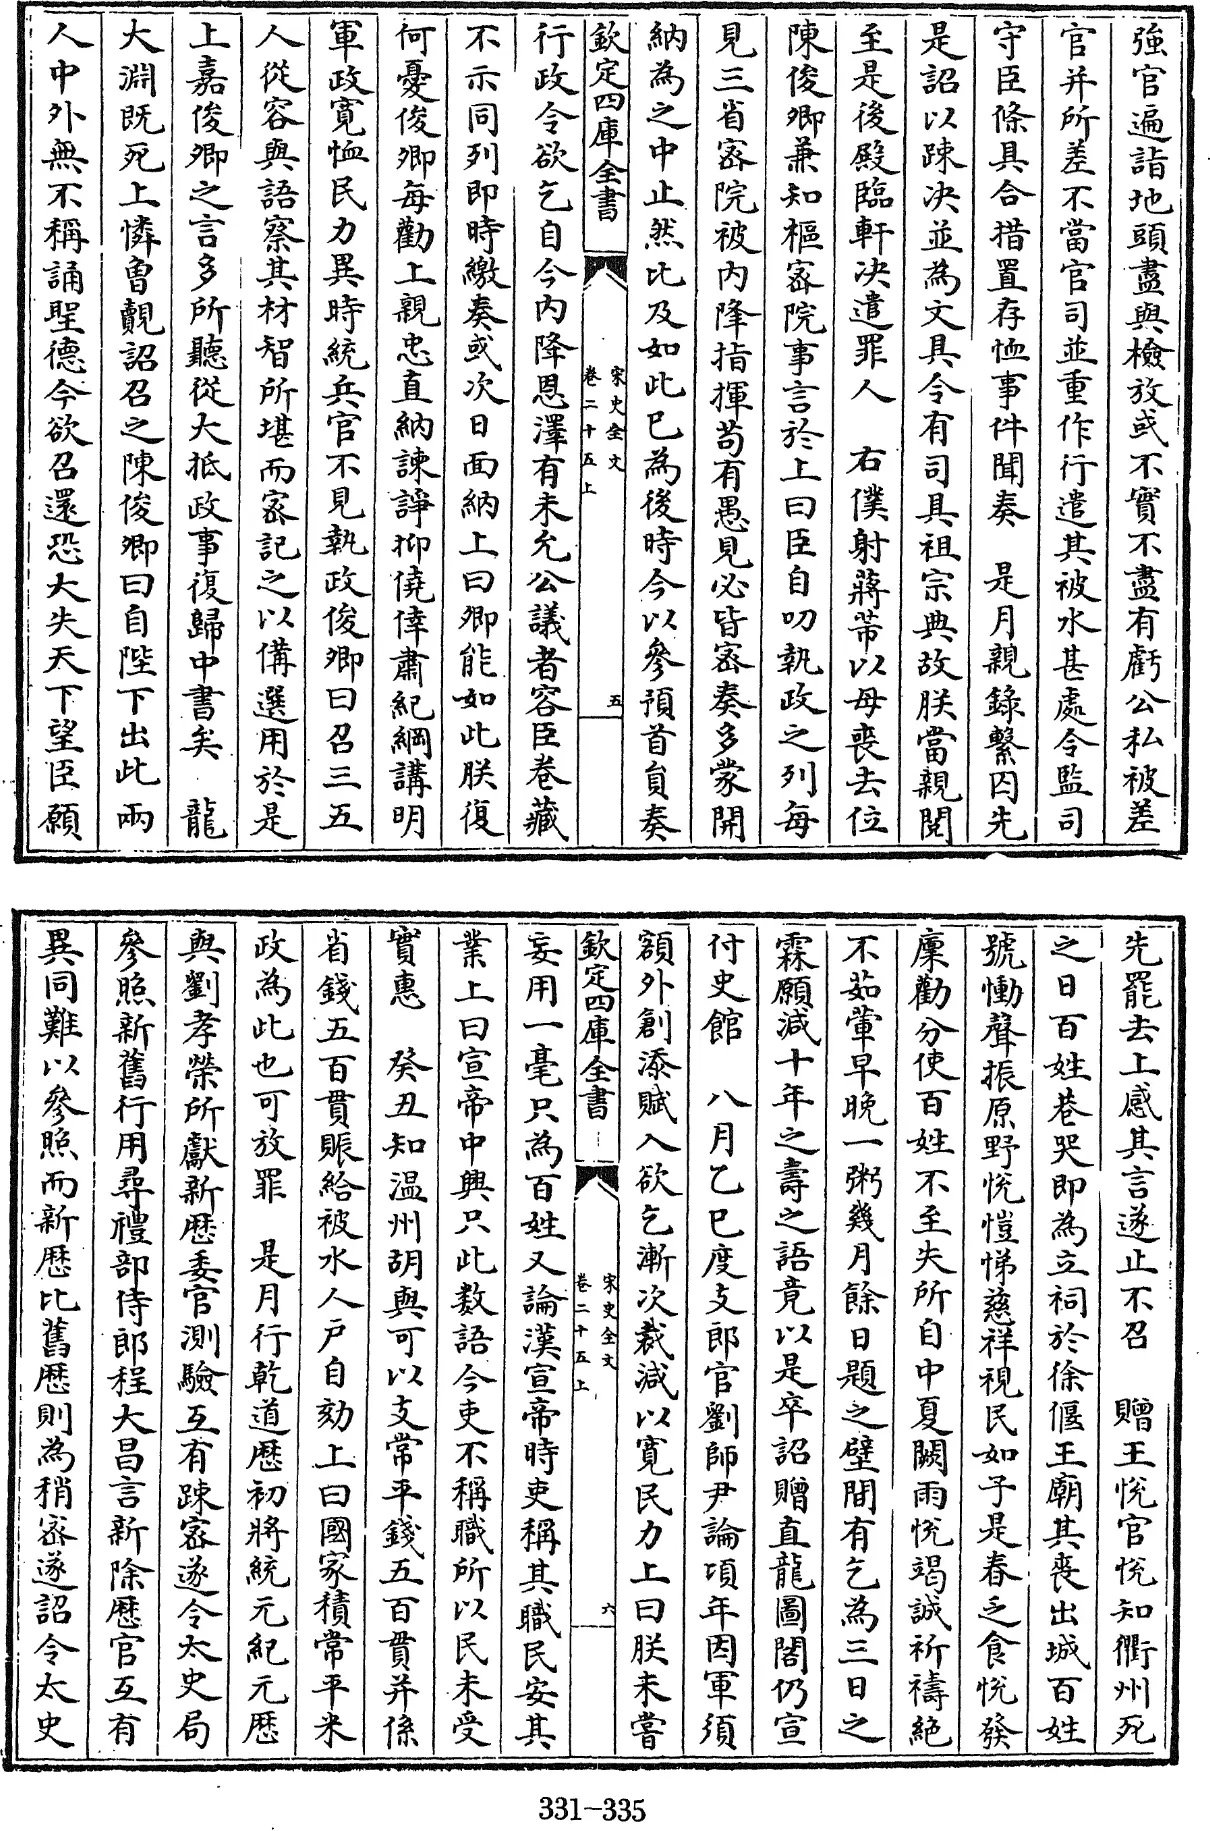 強官遍詣地頭盡與檢放或不實不盡有虧公私被差
官并所差不當官司並重作行遣其被水甚處令監司
守臣條具合措置存恤事件聞奏　是月親錄繫囚先
是詔以踈决並為文具令有司具祖宗典故朕當親閱
至是後殿臨軒决遣罪人　右僕射蔣芾以母喪去位
陳俊卿兼知樞宻院事言於上曰臣自叨執政之列每
見三省宻院被内降指揮茍有愚見必皆宻奏多蒙開
納為之中止然比及如此已為後時今以參預首員奏
欽定四庫全書
宋史全文
卷二十五上
五
行政令欲乞自今内降恩澤有未允公議者容臣卷藏
不示同列即時繳奏或次日面納上曰卿能如此朕復
何憂俊卿每勸上親忠直納諫諍抑僥倖肅紀綱講明
軍政寛恤民力異時統兵官不見執政俊卿曰召三五
人從容與語察其材智所堪而宻記之以備選用於是
上嘉俊卿之言多所聽從大抵政事復歸中書矣　龍
大淵既死上憐曾覿詔召之陳俊卿曰自陛下出此兩
人中外無不稱誦聖德今欲召還恐大失天下望臣願
先罷去上感其言遂止不召　贈王悅官悅知衢州死
之日百姓巷哭即為立祠於徐偃王廟其喪出城百姓
號慟聲振原野悅愷悌慈祥視民如子是春乏食悅發
廩勸分使百姓不至失所自中夏闕雨悅竭誠祈禱絶
不茹葷早晚一粥幾月餘日題之壁間有乞為三日之
霖願減十年之壽之語竟以是卒詔贈直龍圖閣仍宣
付史館　八月乙巳度支郎官劉師尹論項年因軍須
額外創添賦入欲乞漸次裁減以寛民力上曰朕未嘗
欽定四庫全書
宋史全文
卷二十五上
六
妄用一毫只為百姓又論漢宣帝時吏稱其職民安其
業上曰宣帝中興只此数語今吏不稱職所以民未受
實惠　癸丑知温州胡與可以支常平錢五百貫并係
省錢五百貫賑給被水人戸自劾上曰國家積常平米
政為此也可放罪　是月行乾道歴初將統元紀元歴
與劉孝榮所獻新歴委官測驗互有踈宻遂令太史局
參照新舊行用尋禮部侍郎程大昌言新除歴官互有
異同難以參照而新歴比舊歴則為稍宻遂詔令太史
331-335